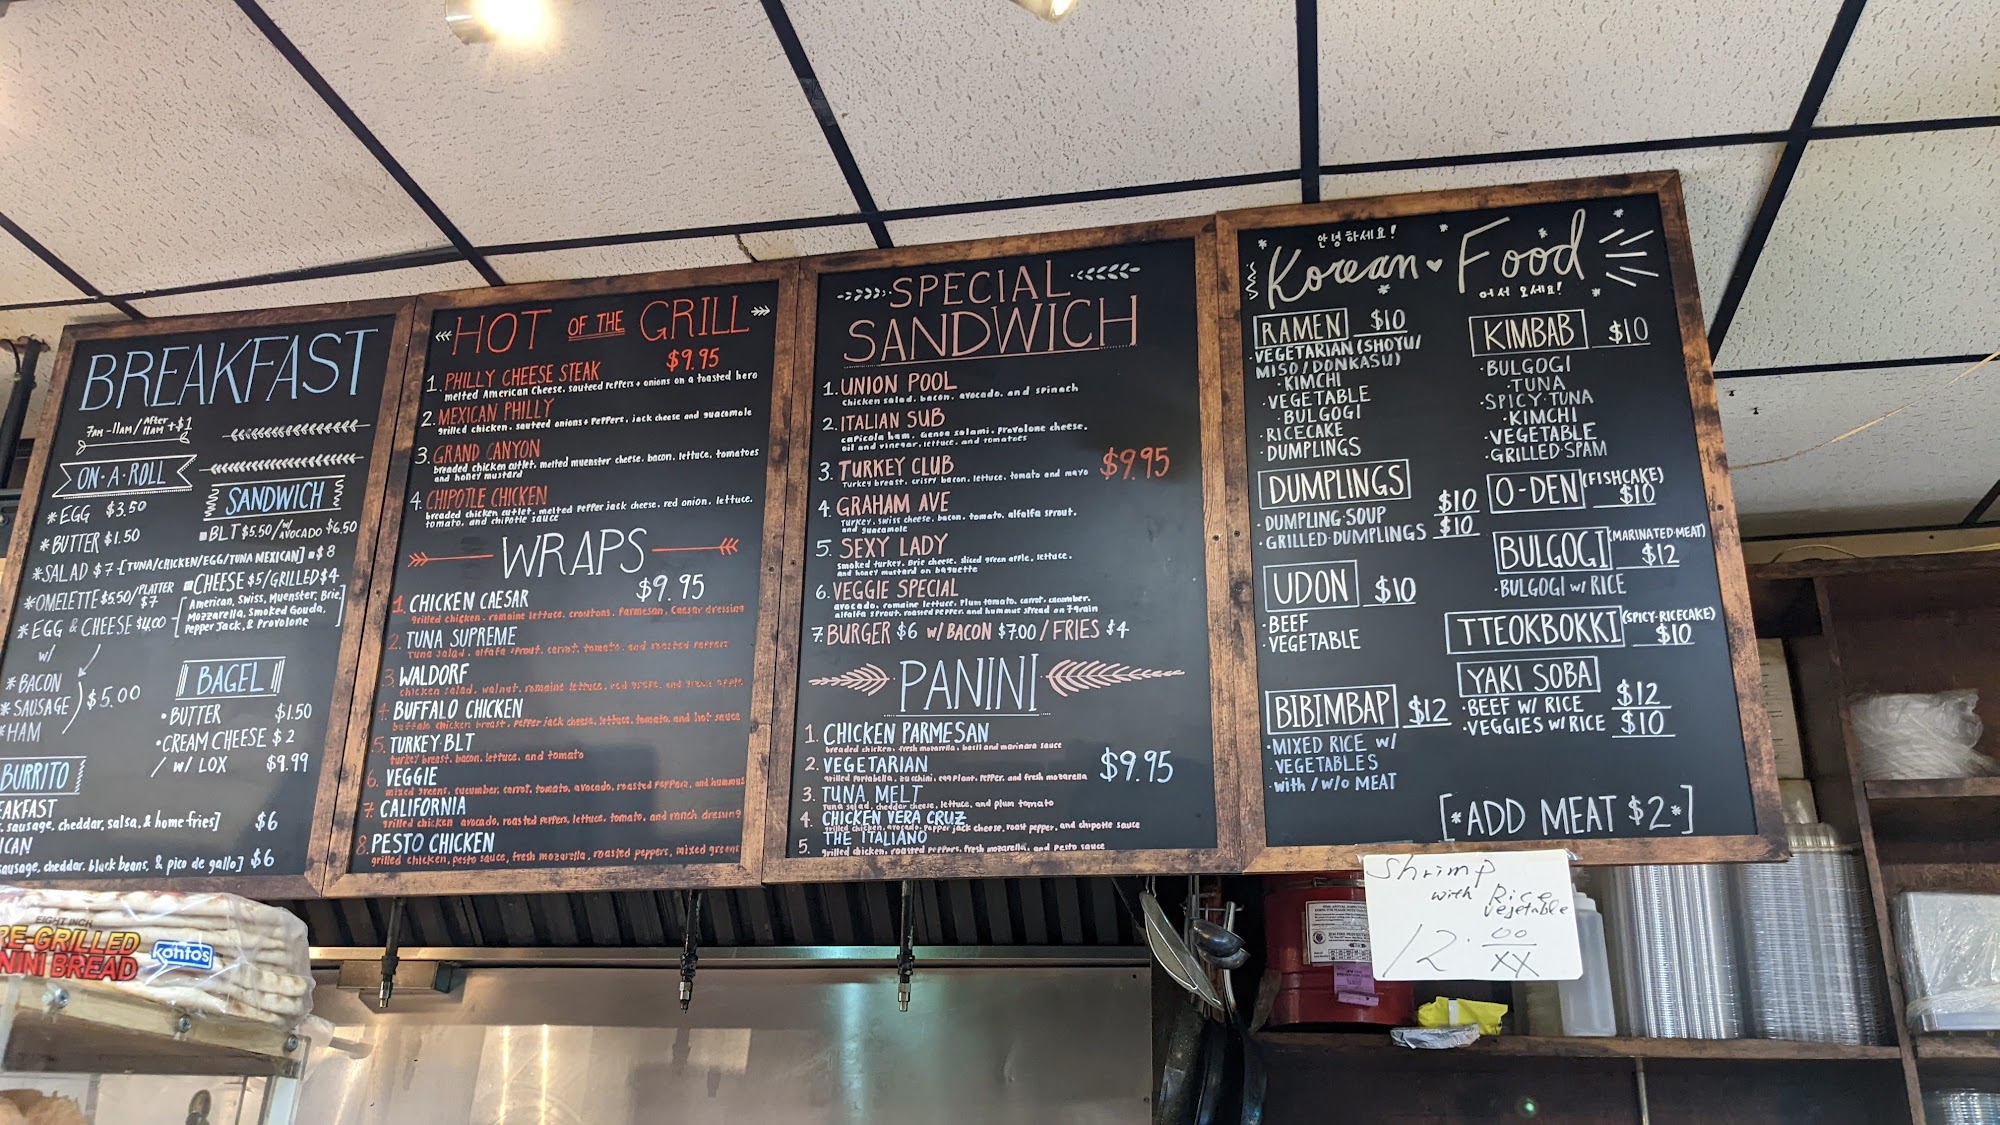 BREAKFAST
7AM-11AM / After 11AM +$1
ON·A·ROLL
*EGG $3.50
*BUTTER $1.50
*SALAD $7-[TUNA/CHICKEN/EGG/TUNA MEXICAN] $8
*OMELETTE $5.50/PLATTER $7
*EGG & CHEESE $4.00
w/
*BACON
*SAUSAGE
*HAM
$5.00
SANDWICH
BLT $5.50/w/ AVOCADO $6.50
CHEESE $5/GRILLED $4
[American, Swiss, Muenster, Brie,
Mozzarella, Smoked Gouda,
Pepper Jack, & Provolone]
BAGEL
·BUTTER $1.50
·CREAM CHEESE $2
/ w/ LOX $9.99
BURRITO
sausage, cheddar, salsa, & home fries] $6
sausage, cheddar, black beans, & pico de gallo] $6
HOT OF THE GRILL
$9.95
1. PHILLY CHEESE STEAK
melted American Cheese, sauteed peppers + onions on a toasted hero
2. MEXICAN PHILLY
grilled chicken, sauteed onions + peppers, jack cheese and guacamole
3. GRAND CANYON
breaded chicken cutlet, melted muenster cheese, bacon, lettuce, tomatoes
and honey mustard
4. CHIPOTLE CHICKEN
breaded chicken cutlet, melted pepper jack cheese, red onion, lettuce,
tomato, and chipotle sauce
WRAPS
$9.95
1. CHICKEN CAESAR
grilled chicken, romaine lettuce, croutons, Parmesan, Caesar dressing
2. TUNA SUPREME
Tuna salad, alfafa sprout, carrot, tomato, and roasted peppers
3. WALDORF
chicken salad, walnut, romaine lettuce, red grape, and green apple
4. BUFFALO CHICKEN
buffalo chicken breast, pepper jack cheese, lettuce, tomato, and hot sauce
5. TURKEY BLT
turkey breast, bacon, lettuce, and tomato
6. VEGGIE
mixed greens, cucumber, carrot, tomato, avocado, roasted peppers, and hummus
7. CALIFORNIA
grilled chicken avocado, roasted peppers, lettuce, tomato, and ranch dressing
8. PESTO CHICKEN
grilled chicken, pesto sauce, fresh mozarella, roasted peppers, mixed greens
SPECIAL
SANDWICH
1. UNION POOL
Chicken salad, bacon, avocado, and spinach
2. ITALIAN SUB
capicola ham, Genoa salami, Provolone cheese,
oil and vinegar, lettuce, and tomatoes
3. TURKEY CLUB
Turkey breast, crispy bacon, lettuce, tomato and mayo
$9.95
4. GRAHAM AVE
Turkey, swiss cheese, bacon, tomato, alfalfa sprout,
and guacamole
5. SEXY LADY
Smoked turkey, Brie cheese, sliced green apple, lettuce,
and honey mustard on baguette
6. VEGGIE SPECIAL
avocado, romaine lettuce, Plum tomato, carrot, cucumber,
alfalfa sprout, roasted pepper, and hummus spread on 7grain
7. BURGER $6 w/ BACON $7.00 / FRIES $4
PANINI
1. CHICKEN PARMESAN
breaded chicken, fresh mozarella, basil and marinara sauce
2. VEGETARIAN
grilled portabella, zucchini, eggplant, pepper, and fresh mozarella
$9.95
3. TUNA MELT
Tuna salad, cheddar cheese, lettuce, and plum tomato
4. CHICKEN VERA CRUZ
grilled chicken, avocado, Pepper jack cheese, roast pepper, and chipotle sauce
5. THE ITALIANO
grilled chicken, roasted peppers, fresh mozarella, and pesto sauce
안녕하세요!
Korean Food
어서오세요!
RAMEN $10
·VEGETARIAN (SHOYU/
MISO/DONKASU)
·KIMCHI
·VEGETABLE
·BULGOGI
·RICECAKE
·DUMPLINGS
DUMPLINGS
·DUMPLING·SOUP $10
·GRILLED·DUMPLINGS $10
UDON $10
·BEEF
·VEGETABLE
BIBIMBAP $12
·MIXED RICE w/
VEGETABLES
·with/w/o MEAT
KIMBAB $10
·BULGOGI
·TUNA
·SPICY·TUNA
·KIMCHI
·VEGETABLE
·GRILLED·SPAM
O-DEN (FISHCAKE) $10
BULGOGI (MARINATED·MEAT) $12
·BULGOGI w/ RICE
TTEOKBOKKI (SPICY·RICECAKE) $10
YAKI SOBA
·BEEF W/ RICE $12
·VEGGIES W/ RICE $10
[*ADD MEAT $2*]
Shrimp
with Rice
vejetable
12.00
XX
EIGHT INCH
RE-GRILLED
NINI BREAD
kontos